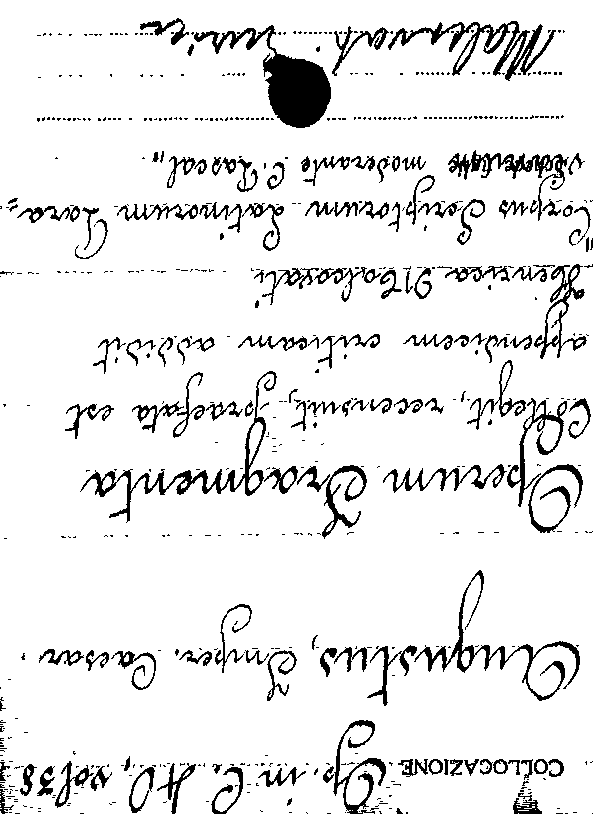 COLLOCAZIONE Op. in C. 40, vol 38
Augustus, Imper. Caesar.
Operum Fragmenta
Collegit, recensuit, praefata est
appendicem criticam addidit
Henrica Malcovati
"Corpus Scriptorum Latinorum Para=
moderante C. Pascal"
Malcovati Enrica